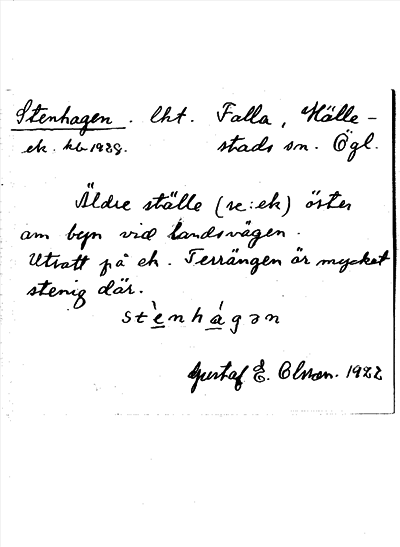 Stenhagen. lht. Falla, Hälle-
ek. kb 1928. stads sn. Ögl.
Äldre ställe (se: ek) öster
om byn vid landsvägen.
Utsatt på ek. Terrängen är mycket
stenig där.
stènhágən
Gustaf E. Olsson. 1922